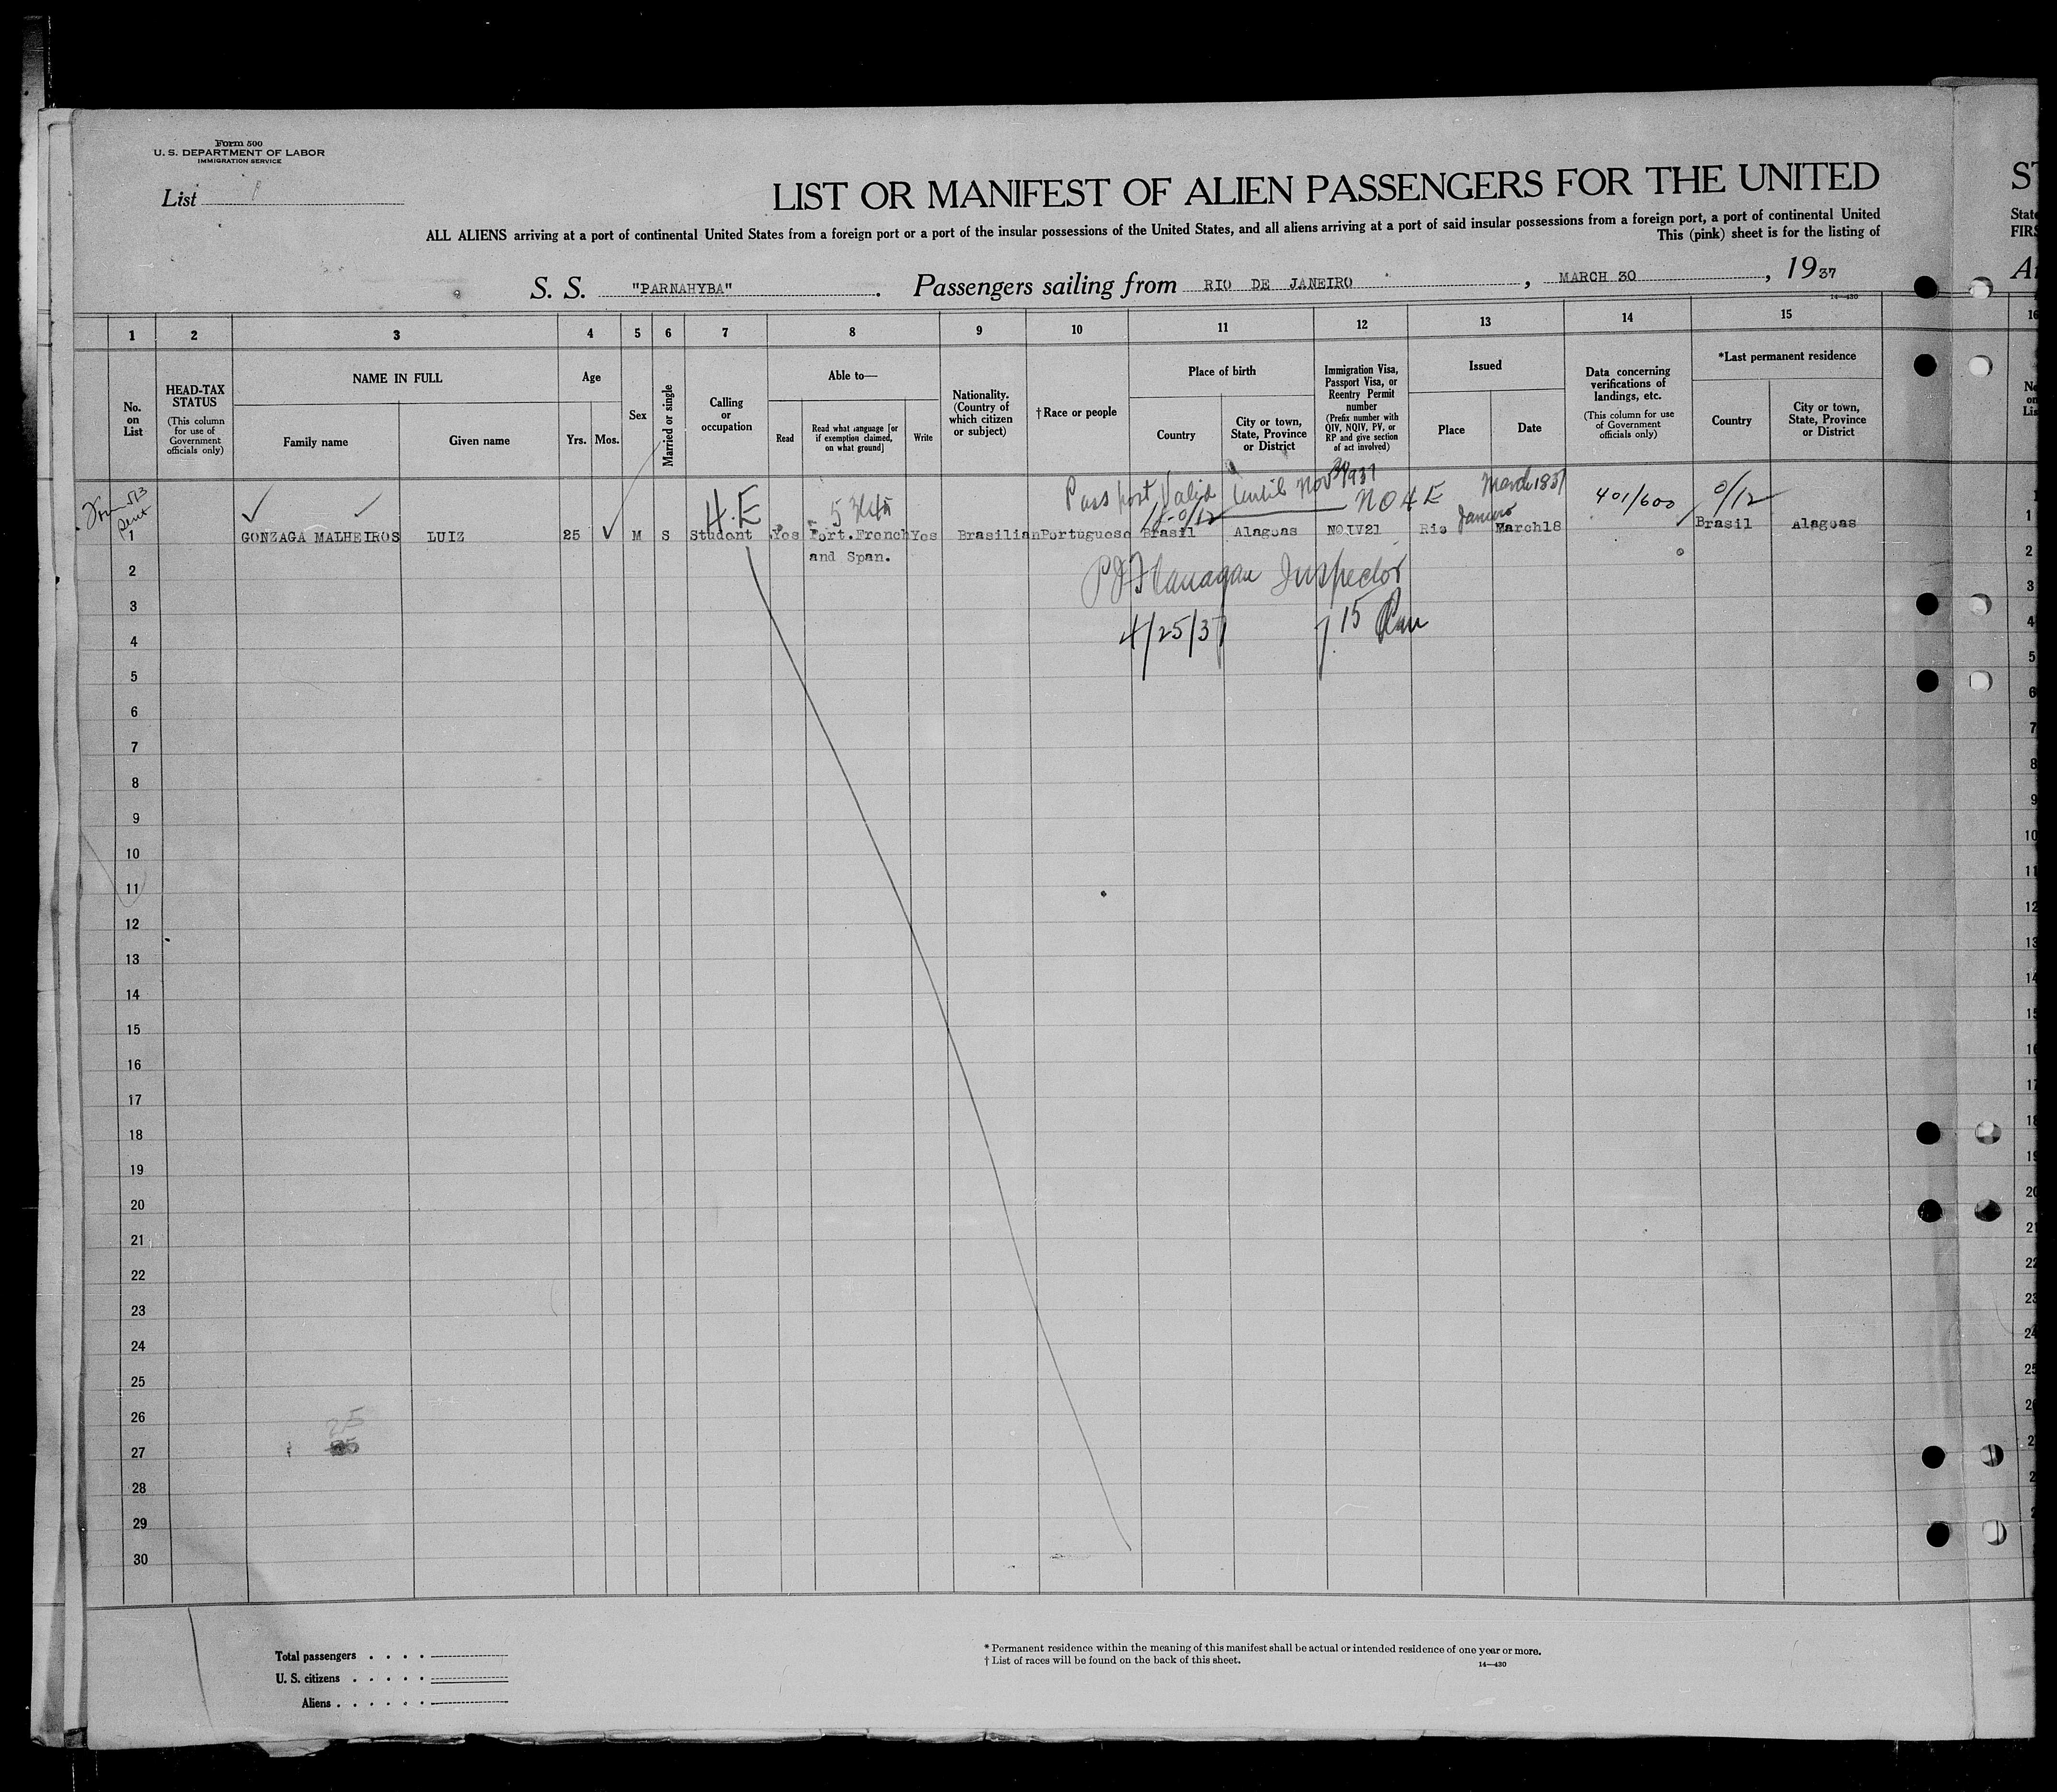 Form 500
U. S. DEPARTMENT OF LABOR
IMMIGRATION SERVICE
List
LIST OR MANIFEST OF ALIEN PASSENGERS FOR THE UNITED
ALL ALIENS arriving at a port of continental United States from a foreign port or a port of the insular possessions of the United States, and all aliens arriving at a port of said insular possessions from a foreign port, a port of continental United
This (pink) sheet is for the listing of
S. S. "PARNAHYBA". Passengers sailing from RIO DE JANEIRO, MARCH 30, 1937
14—430
1 2 3 4 5 6 7 8 9 10 11 12 13 14 15
No. on List
HEAD-TAX STATUS
(This column for use of Government officials only)
NAME IN FULL
Family name
Given name
Age
Yrs. Mos.
Sex
Married or single
Calling or occupation
Able to—
Read
Read what language [or if exemption claimed, on what ground]
Write
Nationality. (Country of which citizen or subject)
† Race or people
Place of birth
Country
City or town, State, Province or District
Immigration Visa, Passport Visa, or Reentry Permit number
(Prefix number with QIV, NQIV, PV, or RP and give section of act involved)
Issued
Place
Date
Data concerning verifications of landings, etc.
(This column for use of Government officials only)
*Last permanent residence
Country
City or town, State, Province or District
Passport Valid Until Nov 30 1937
H.E NO 4 E March 18 37 401/600 0/12
Janeiro
1 GONZAGA MALHEIROS LUIZ 25 M S Student Yes Port. French Yes Brasilian Portuguese Brasil Alagoas NQIV21 Rio March18 Brasil Alagoas
and Span.
2
PJ Flanagan Inspector
3
4/25/37 7 15 Pm
4
5
6
7
8
9
10
11
12
13
14
15
16
17
18
19
20
21
22
23
24
25
26
25
27
28
29
30
Total passengers
U. S. citizens
Aliens
* Permanent residence within the meaning of this manifest shall be actual or intended residence of one year or more.
† List of races will be found on the back of this sheet.
14—430